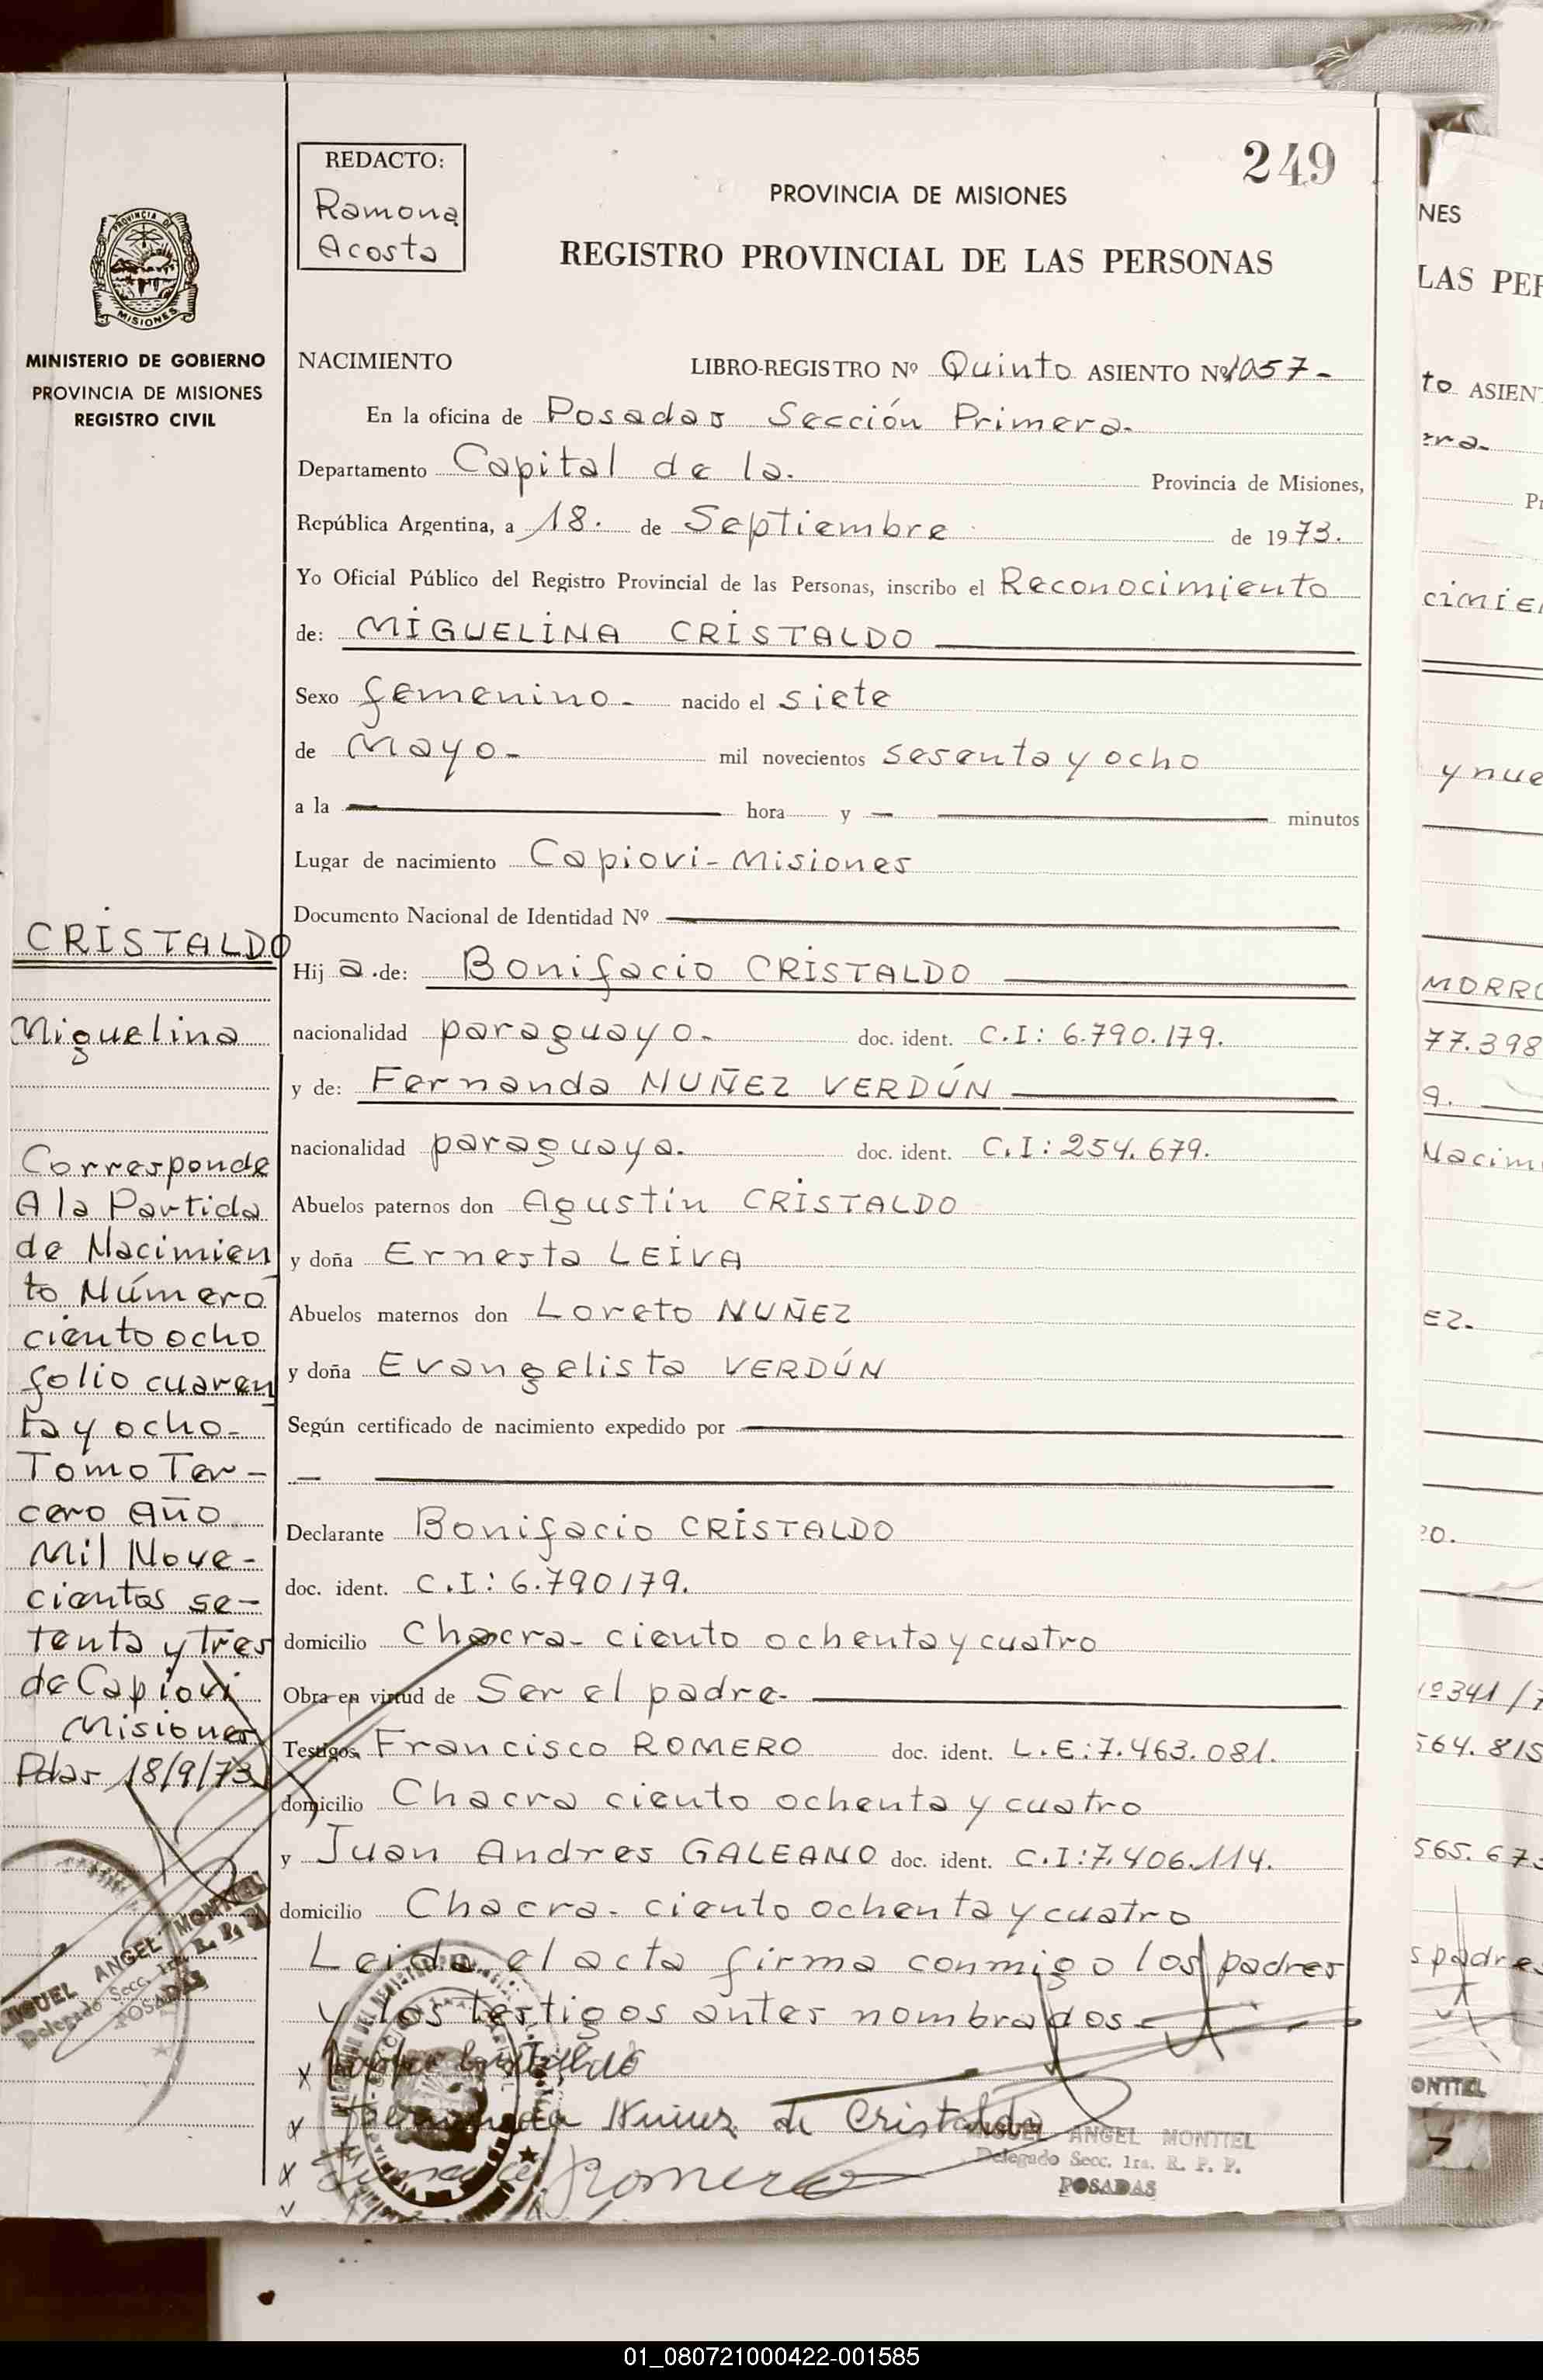 249
REDACTO:
Ramona
Acosta
PROVINCIA DE MISIONES
REGISTRO PROVINCIAL DE LAS PERSONAS
PROVINCIA DE
MISIONES
MINISTERIO DE GOBIERNO
PROVINCIA DE MISIONES
REGISTRO CIVIL
NACIMIENTO LIBRO-REGISTRO Nº Quinto ASIENTO Nº 1057-
En la oficina de Posadas Sección Primera-
Departamento Capital de la. Provincia de Misiones,
República Argentina, a 18. de Septiembre de 1973.
Yo Oficial Público del Registro Provincial de las Personas, inscribo el Reconocimiento
de: MIGUELINA CRISTALDO
Sexo femenino- nacido el siete
de Mayo- mil novecientos sesenta y ocho
a la — hora y — minutos
Lugar de nacimiento Capiovi-Misiones
Documento Nacional de Identidad Nº —
Hij a de: Bonifacio CRISTALDO
nacionalidad paraguayo- doc. ident. C.I: 6.790.179.
y de: Fernanda NUÑEZ VERDÚN
nacionalidad paraguaya. doc. ident. C.I: 254.679.
Abuelos paternos don Agustín CRISTALDO
y doña Ernesta LEIVA
Abuelos maternos don Loreto NUÑEZ
y doña Evangelista VERDÚN
Según certificado de nacimiento expedido por —
—
Declarante Bonifacio CRISTALDO
doc. ident. C.I: 6.790179.
domicilio Chacra- ciento ochenta y cuatro
Obra en virtud de Ser el padre-
Testigos Francisco ROMERO doc. ident. L.E: 7.463.081.
domicilio Chacra ciento ochenta y cuatro
y Juan Andres GALEANO doc. ident. C.I: 7.406.114.
domicilio Chacra- ciento ochenta y cuatro
Leida el acta firma conmigo los padres
y los testigos antes nombrados-
x
x Fernanda Nuñez de Cristaldo
x Romero
MIGUEL ANGEL MONTIEL
Delegado Secc. 1ra. R. P. P.
POSADAS
CRISTALDO
Miguelina
Corresponde
A la Partida
de Nacimien
to Número
ciento ocho
folio cuaren
ta y ocho-
Tomo Ter-
cero Año
Mil Nove-
cientos se-
tenta y tres
de Capiovi
Misiones
Pdas 18/9/73
MIGUEL ANGEL MONTIEL
Delegado Secc. 1ra. R. P. P.
POSADAS
NES
LAS PER
to ASIENT
era-
Pr
cimie
y nue
MORRO
77.398
9.
Nacim
EZ-
20.
º341/7
564.815
565.673
s padres
ONTIEL
01_080721000422-001585